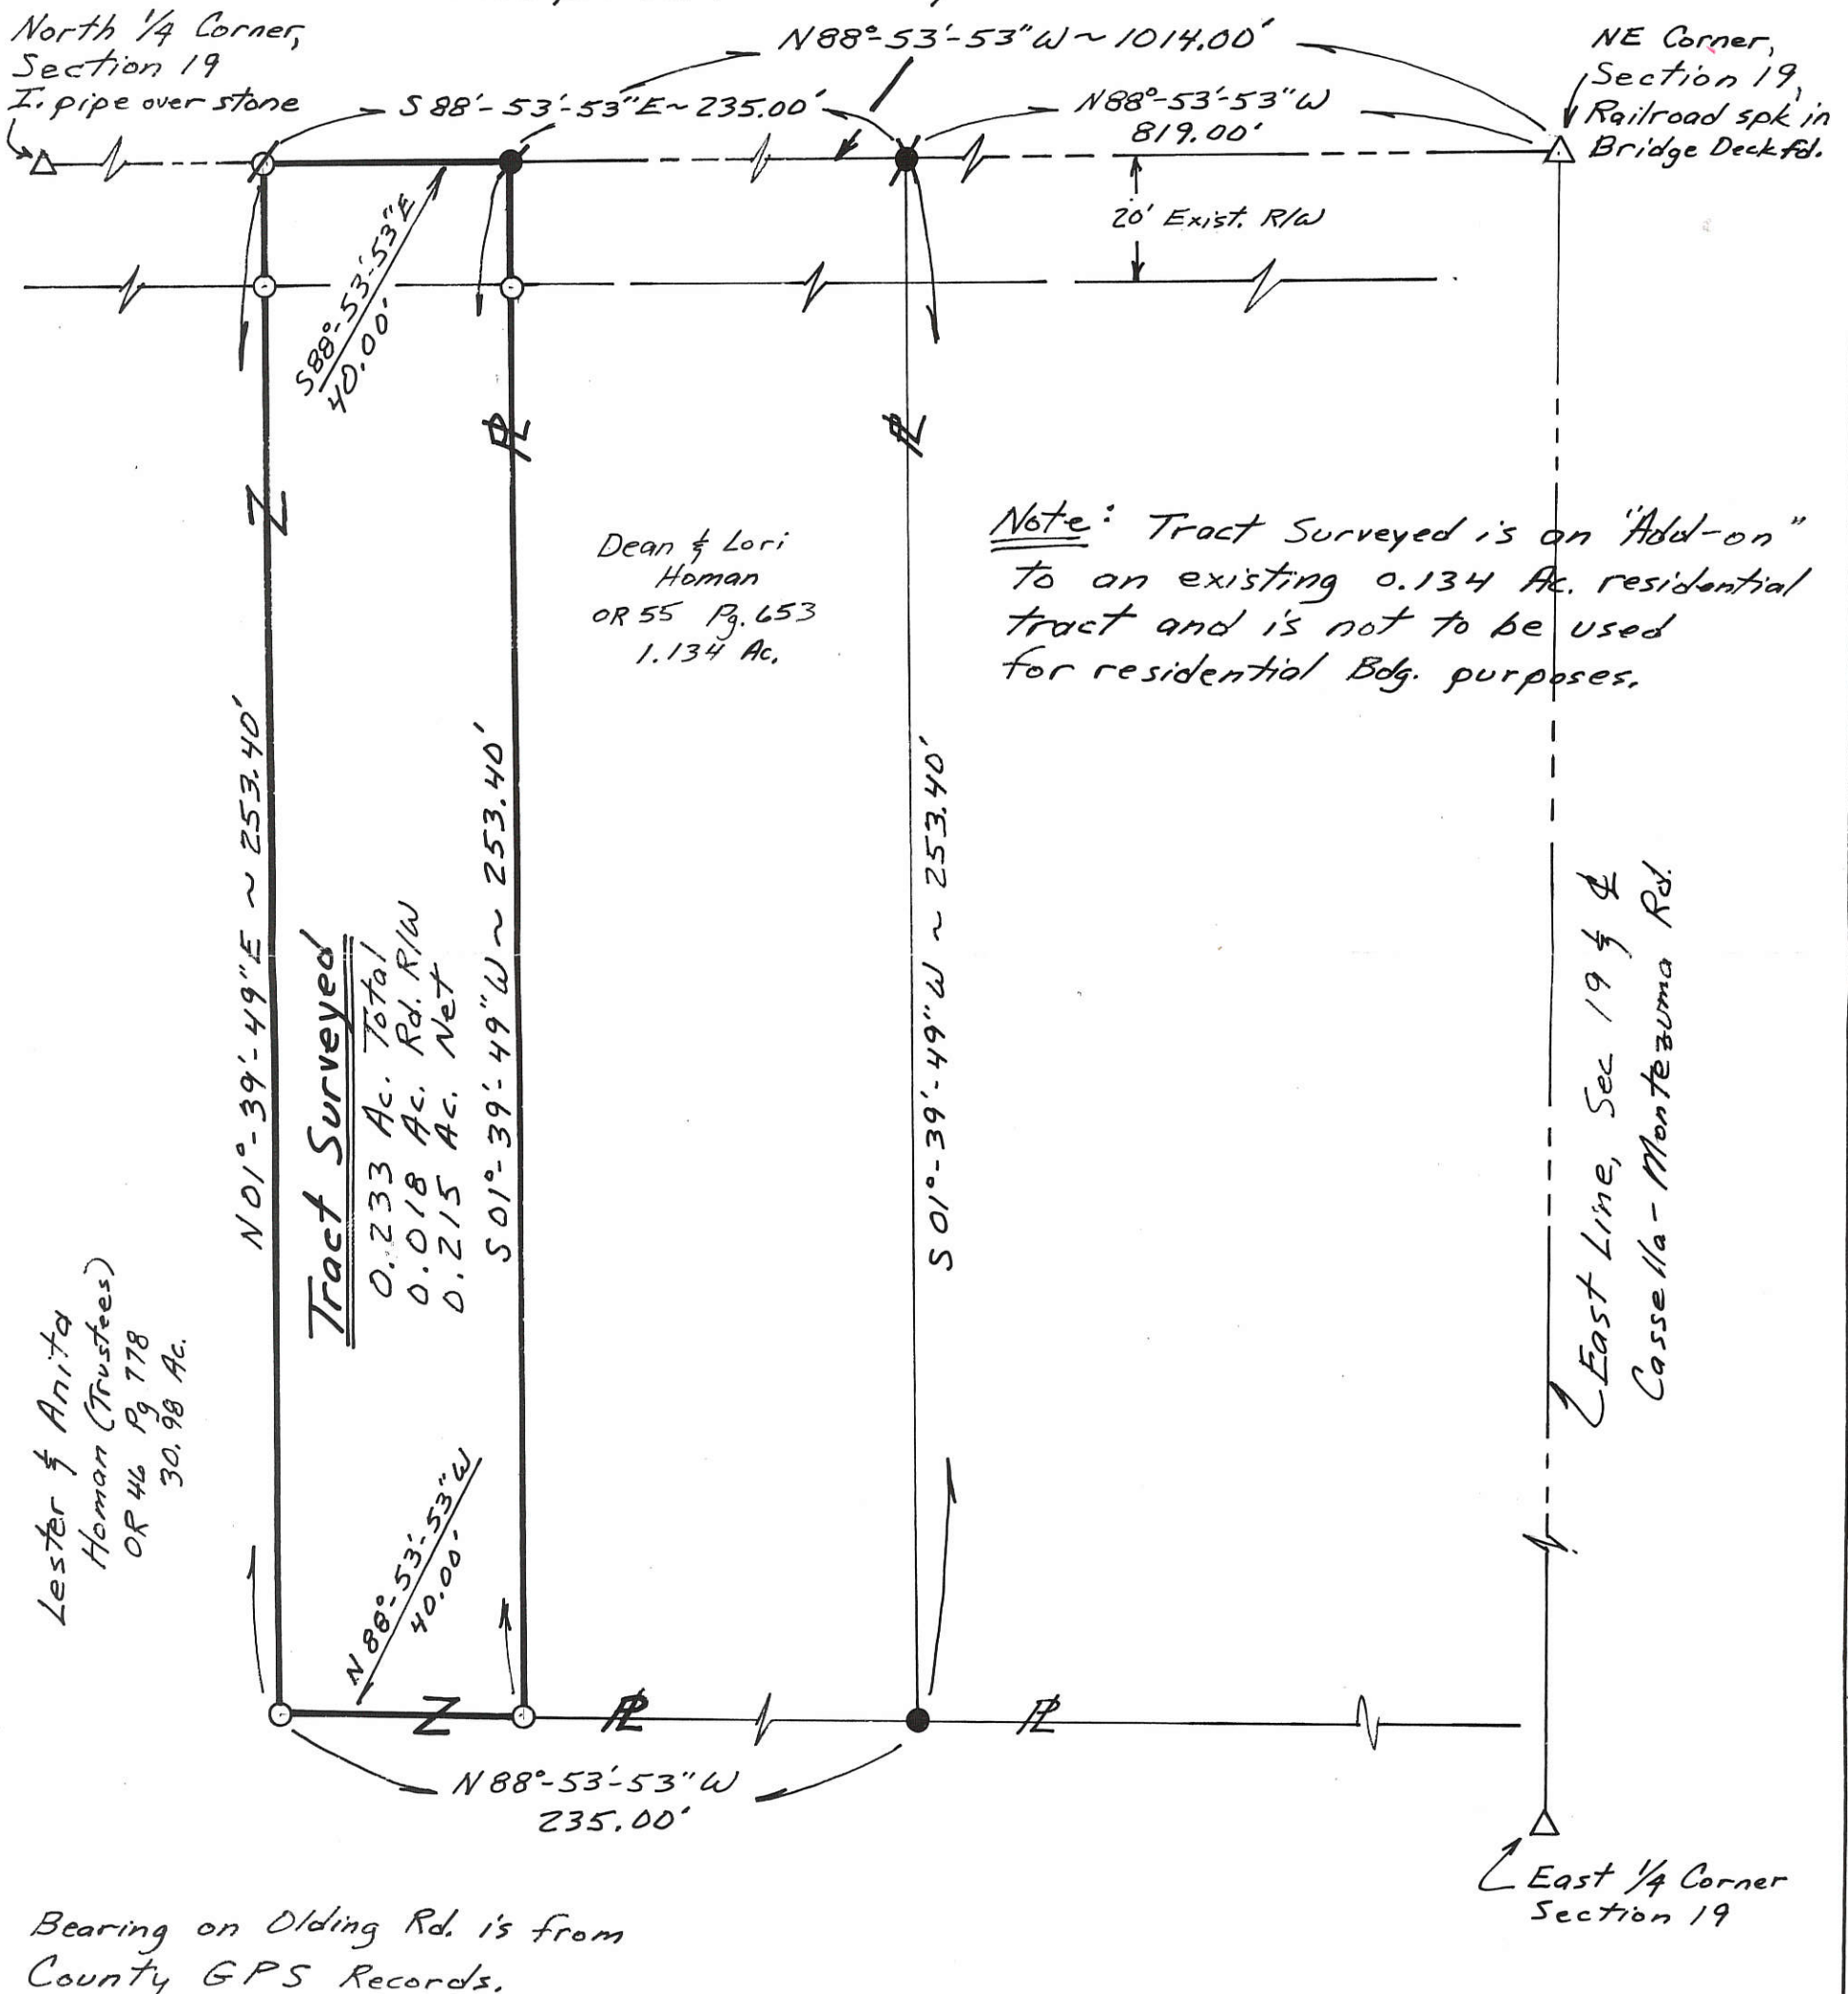 N88°-53'-53"W ~ 1014.00'
North 1/4 Corner,
Section 19
I. pipe over stone
S88'-53'-53"E ~ 235.00'
N88°-53'-53"W
819.00'
NE Corner,
Section 19,
Railroad spk in
Bridge Deck fd.
20' Exist. R/W
S88°-53'-53"E
40.00'
PL
PL
Z
Dean & Lori
Homan
OR 55 Pg. 653
1.134 Ac.
Note: Tract Surveyed is an "Add-on"
to an existing 0.134 Ac. residential
tract and is not to be used
for residential Bdg. purposes.
N01°-39'-49"E ~ 253.40'
Tract Surveyed
0.233 Ac. Total
0.018 Ac. Rd. R/W
0.215 Ac. Net
S01°-39'-49"W ~ 253.40'
S01°-39'-49"W ~ 253.40'
East Line, Sec 19 & CL
Cassella-Montezuma Rd.
Lester & Anita
Homan (Trustees)
OR 46 Pg 778
30.98 Ac.
N88°-53'-53"W
40.00'
Z
PL
PL
N88°-53'-53"W
235.00'
East 1/4 Corner
Section 19
Bearing on Olding Rd. is from
County GPS Records.